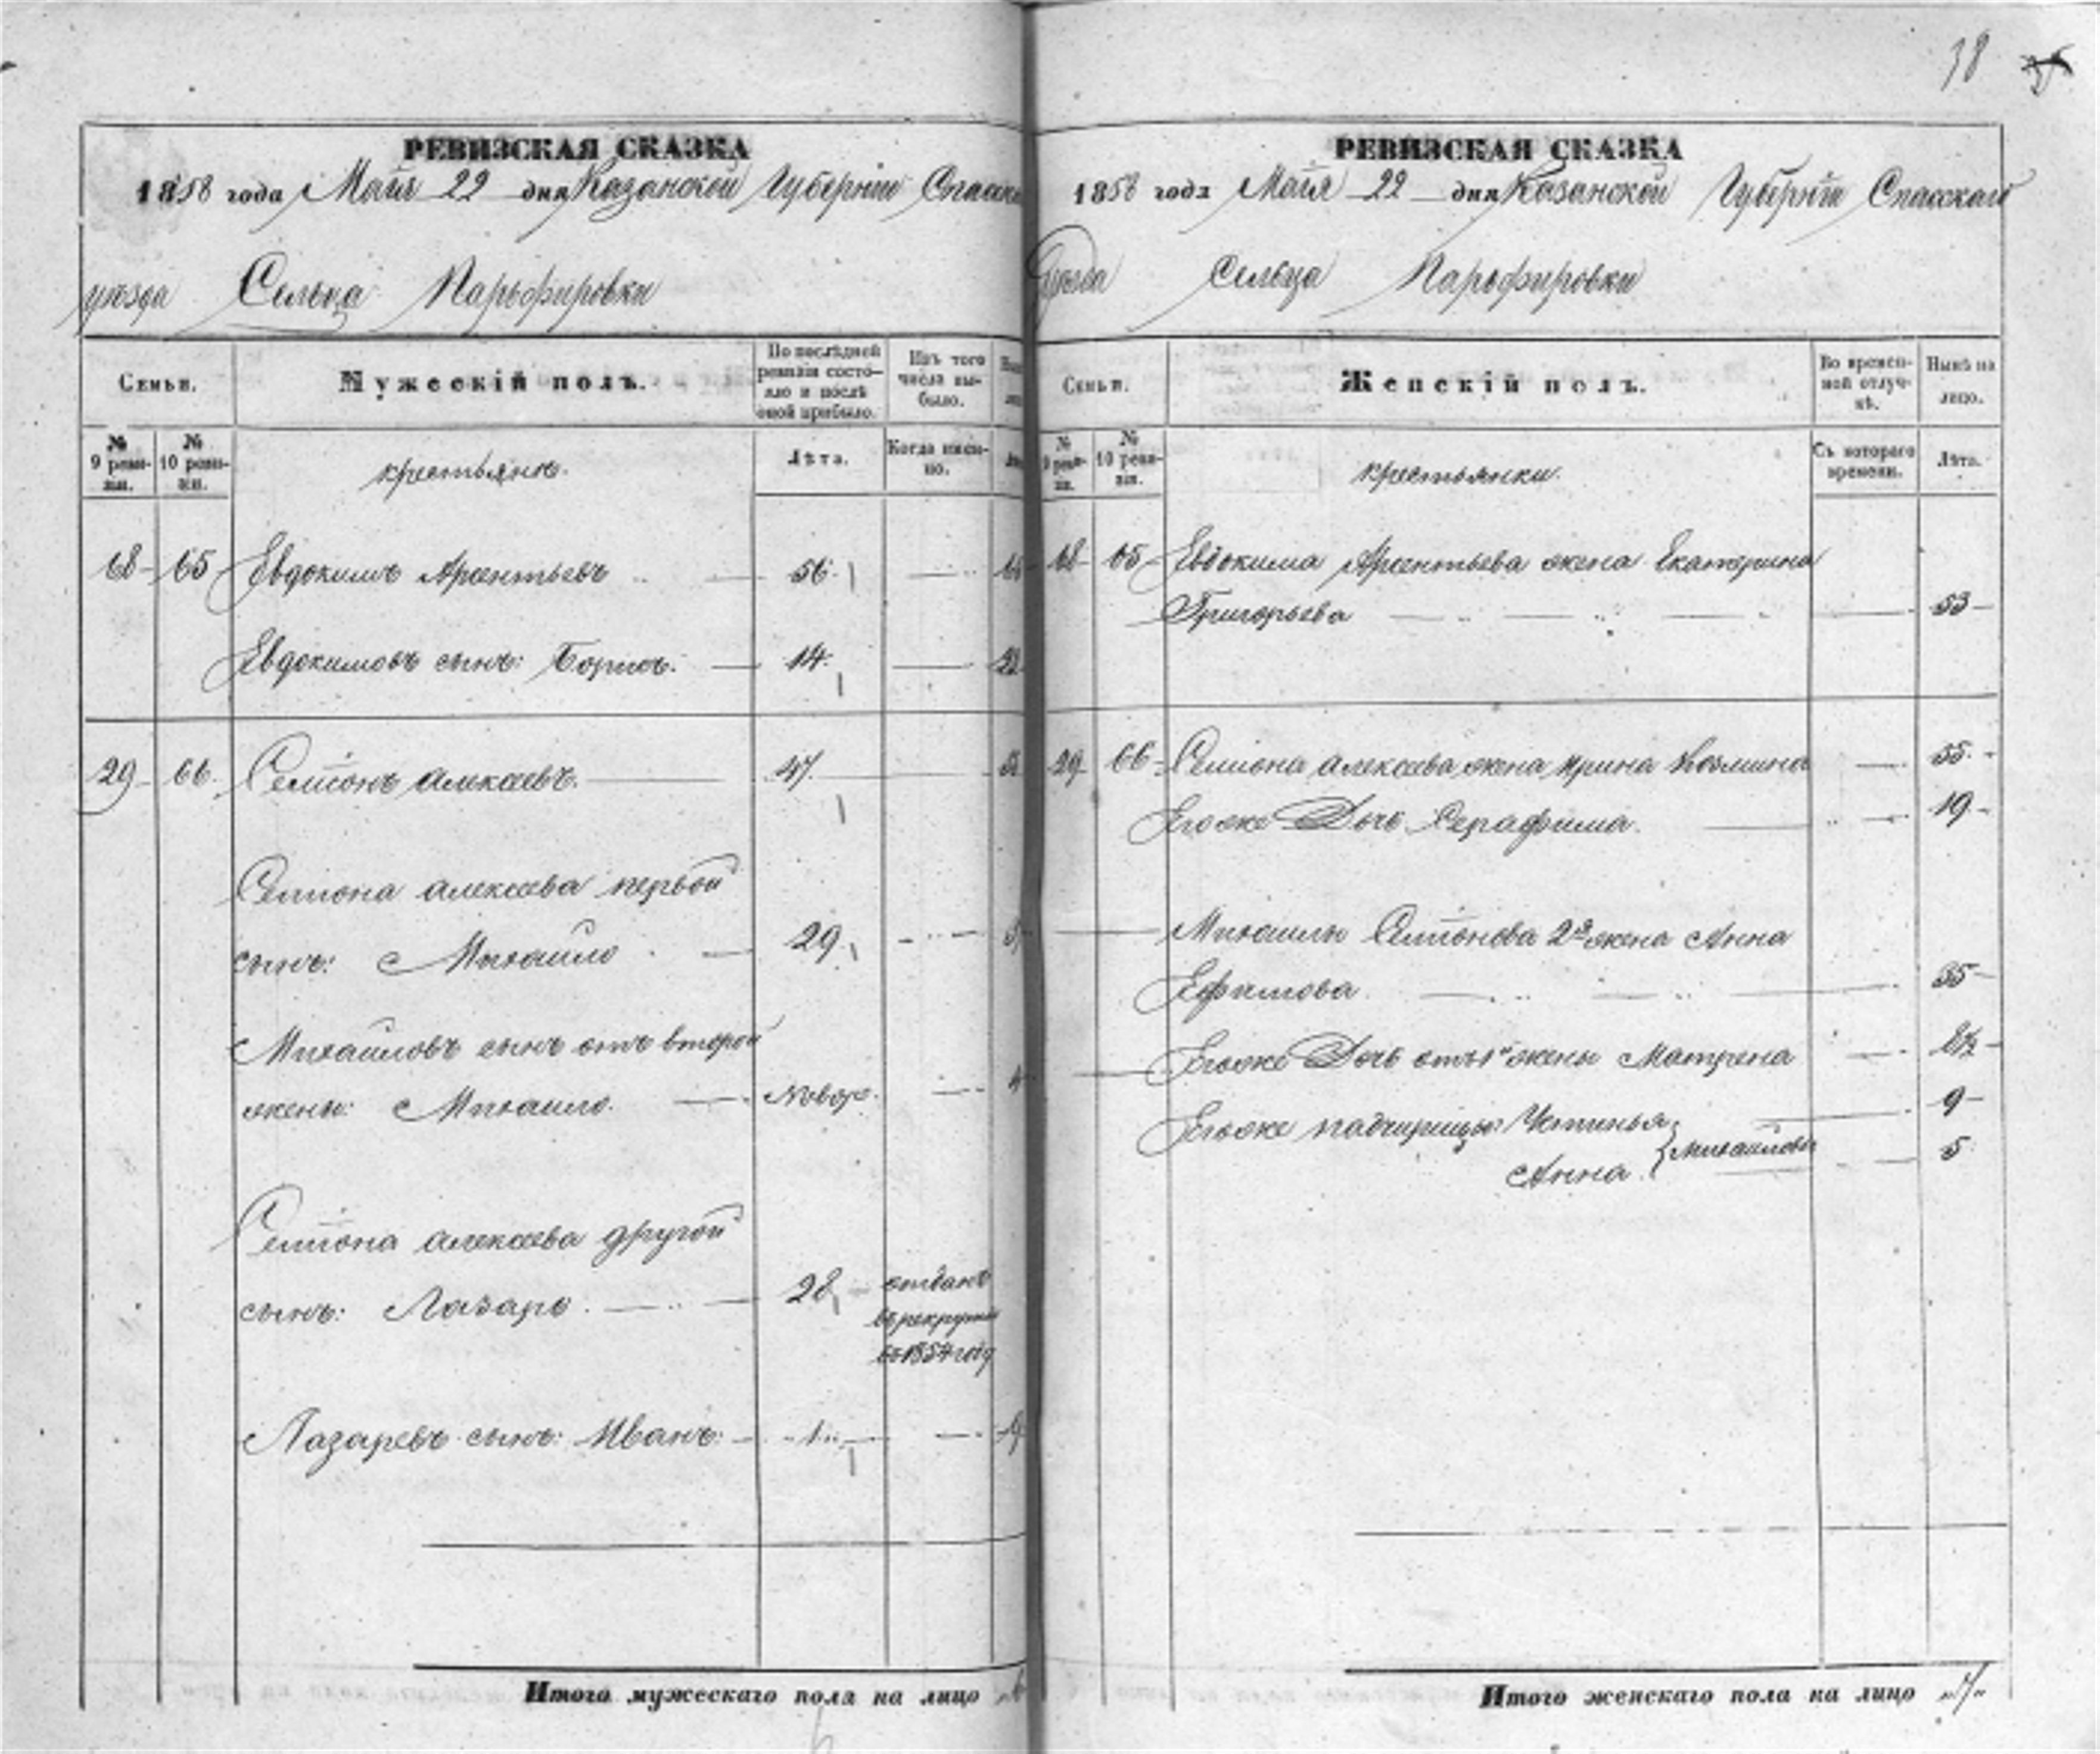 38
РЕВИЗСКАЯ СКАЗКА
1858 года Майя 22 дня Казанской Губернiи Спасска
уѣзда Сельца Парьфировки
Семьи.
Мужескiй полъ.
По послѣдней ревизiи состояло и послѣ оной прибыло.
Изъ того числа выбыло.
№ 9 ревизiи.
№ 10 ревизiи.
крестьяне.
Лѣта.
Когда именно.
68 65 Евдокимъ Арсентьевъ 56
Евдокимовъ сынъ: Борисъ. 14. 22
29 66. Семионъ алексеевъ. 47.
Семиона алексеева первой
сынъ: Михаило 29
Михаиловъ сынъ отъ второй
жены: Михаило. Новор.
Семиона алексеева другой
сынъ: Лазарь. 28 отданъ
въ рекруты
въ 1854 году
Лазаревъ сынъ: Иванъ: 1
Итого мужескаго пола на лицо
РЕВИЗСКАЯ СКАЗКА
1858 года Майя 22 дня Казанской Губернiи Спасскаго
уѣзда Сельца Парьфировки
Семьи.
Женскiй полъ.
Во временной отлучкѣ.
Нынѣ на лицо.
№ 9 ревизiи.
№ 10 ревизiи.
крестьянки.
Съ котораго времени.
Лѣта.
68 65 Евдокима Арсентьева жена Екатерина
Григорьева 53
29 66 Семиона алексеева жена Ирина Козмина 55.
Егоже Дочь Серафима. 19
Михаилы Семионова 2я жена Анна
Ефимова 35
Егоже Дочь отъ 1й жены Матрена 8½
Егоже падчирицы: Устинья 9
Анна Михайловы 5
Итого женскаго пола на лицо „7„